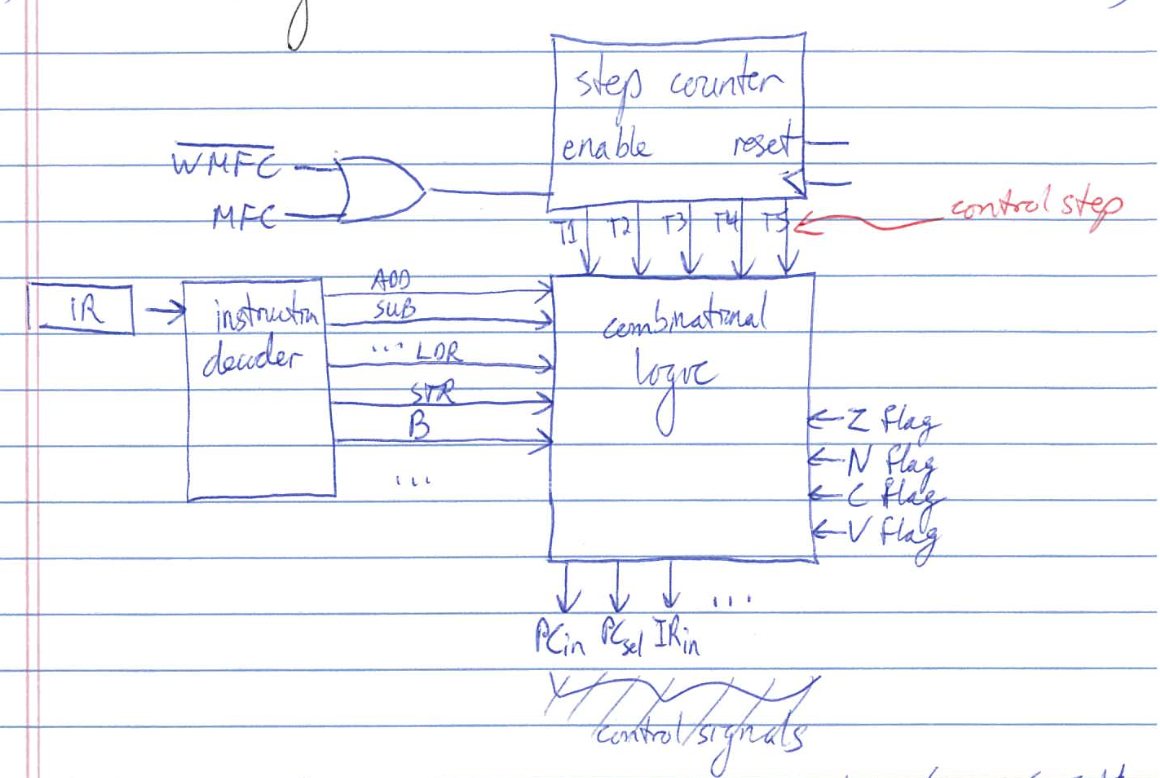 step counter
enable reset
W̅M̅F̅C̅
MFC
T1 T2 T3 T4 T5
control step
IR
instruction
decoder
ADD
SUB
... LDR
STR
B
...
combinational
logic
Z flag
N flag
C flag
V flag
PCin PCsel IRin ...
control signals